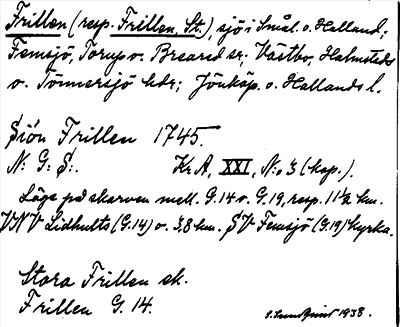 Frillen (resp. Frillen, St.) sjö i Smål. o. Halland;
Femsjö, Torup o. Breared sr; Västbo, Halmstads
o. Tönnersjö hdr; Jönköp. o. Hallands l.
Siön Frillen 1745.
N: G: S:. Kr.A, XXI, No 3 (kop.).
Läge på skarven mell. G.14 o. G.19, resp. 11½ km.
VNV Lidhults (G.14) o. 3,8 km. SV Femsjö (G.19) kyrka.
Stora Frillen sk.
Frillen G. 14.
1938.